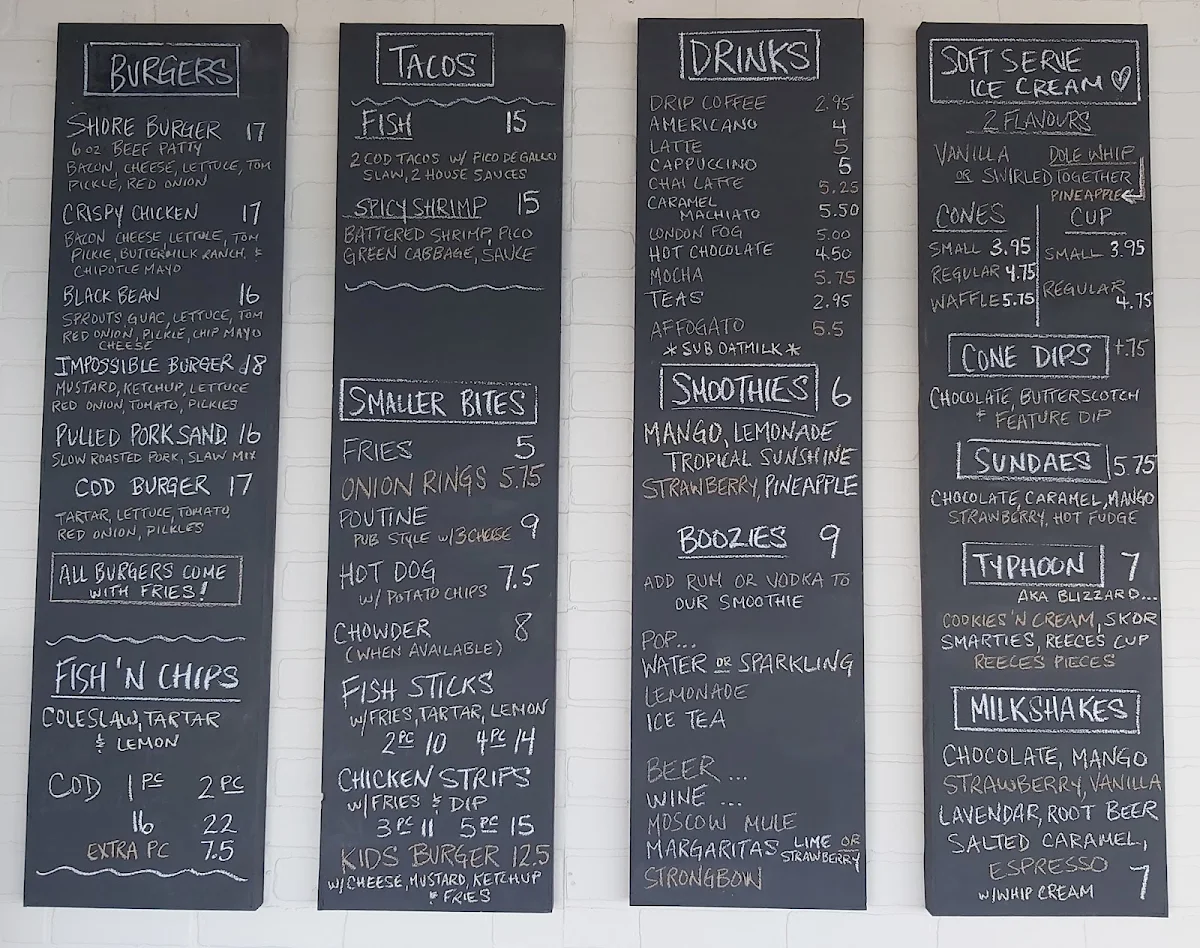 BURGERS
SHORE BURGER 17
6 oz BEEF PATTY
BACON, CHEESE, LETTUCE, TOM
PICKLE, RED ONION
CRISPY CHICKEN 17
BACON CHEESE, LETTUCE, TOM
PICKLE, BUTTERMILK RANCH, &
CHIPOTLE MAYO
BLACK BEAN 16
SPROUTS GUAC, LETTUCE, TOM
RED ONION, PICKLE, CHIP MAYO
CHEESE
IMPOSSIBLE BURGER 18
MUSTARD, KETCHUP, LETTUCE
RED ONION, TOMATO, PICKLES
PULLED PORK SAND. 16
SLOW ROASTED PORK, SLAW MIX
COD BURGER 17
TARTAR, LETTUCE, TOMATO,
RED ONION, PICKLES
ALL BURGERS COME
WITH FRIES!
FISH 'N CHIPS
COLESLAW, TARTAR
& LEMON
COD 1 PC 2 PC
16 22
EXTRA PC 7.5
TACOS
FISH 15
2 COD TACOS W/ PICO DE GALLO
SLAW, 2 HOUSE SAUCES
SPICY SHRIMP 15
BATTERED SHRIMP, PICO
GREEN CABBAGE, SAUCE
SMALLER BITES
FRIES 5
ONION RINGS 5.75
POUTINE 9
PUB STYLE w/ 3 CHEESE
HOT DOG 7.5
W/ POTATO CHIPS
CHOWDER 8
(WHEN AVAILABLE)
FISH STICKS
W/FRIES, TARTAR, LEMON
2 PC 10 4 PC 14
CHICKEN STRIPS
W/FRIES & DIP
3 PC 11 5 PC 15
KIDS BURGER 12.5
W/CHEESE, MUSTARD, KETCHUP
& FRIES
DRINKS
DRIP COFFEE 2.95
AMERICANO 4
LATTE 5
CAPPUCCINO 5
CHAI LATTE 5.25
CARAMEL
MACHIATO 5.50
LONDON FOG 5.00
HOT CHOCOLATE 4.50
MOCHA 5.75
TEAS 2.95
AFFOGATO 5.5
*SUB OATMILK*
SMOOTHIES 6
MANGO, LEMONADE
TROPICAL SUNSHINE
STRAWBERRY, PINEAPPLE
BOOZIES 9
ADD RUM OR VODKA TO
OUR SMOOTHIE
POP...
WATER OR SPARKLING
LEMONADE
ICE TEA
BEER ...
WINE ...
MOSCOW MULE
MARGARITAS LIME OR
STRAWBERRY
STRONGBOW
SOFT SERVE
ICE CREAM ♡
2 FLAVOURS
VANILLA DOLE WHIP
OR SWIRLED TOGETHER
PINEAPPLE
CONES CUP
SMALL 3.95 SMALL 3.95
REGULAR 4.75 REGULAR
WAFFLE 5.75 4.75
CONE DIPS +.75
CHOCOLATE, BUTTERSCOTCH
+ FEATURE DIP
SUNDAES 5.75
CHOCOLATE, CARAMEL, MANGO
STRAWBERRY, HOT FUDGE
TYPHOON 7
AKA BLIZZARD...
COOKIES 'N CREAM, SKOR
SMARTIES, REECES CUP
REECES PIECES
MILKSHAKES
CHOCOLATE, MANGO
STRAWBERRY, VANILLA
LAVENDAR, ROOT BEER
SALTED CARAMEL,
ESPRESSO
W/WHIP CREAM 7